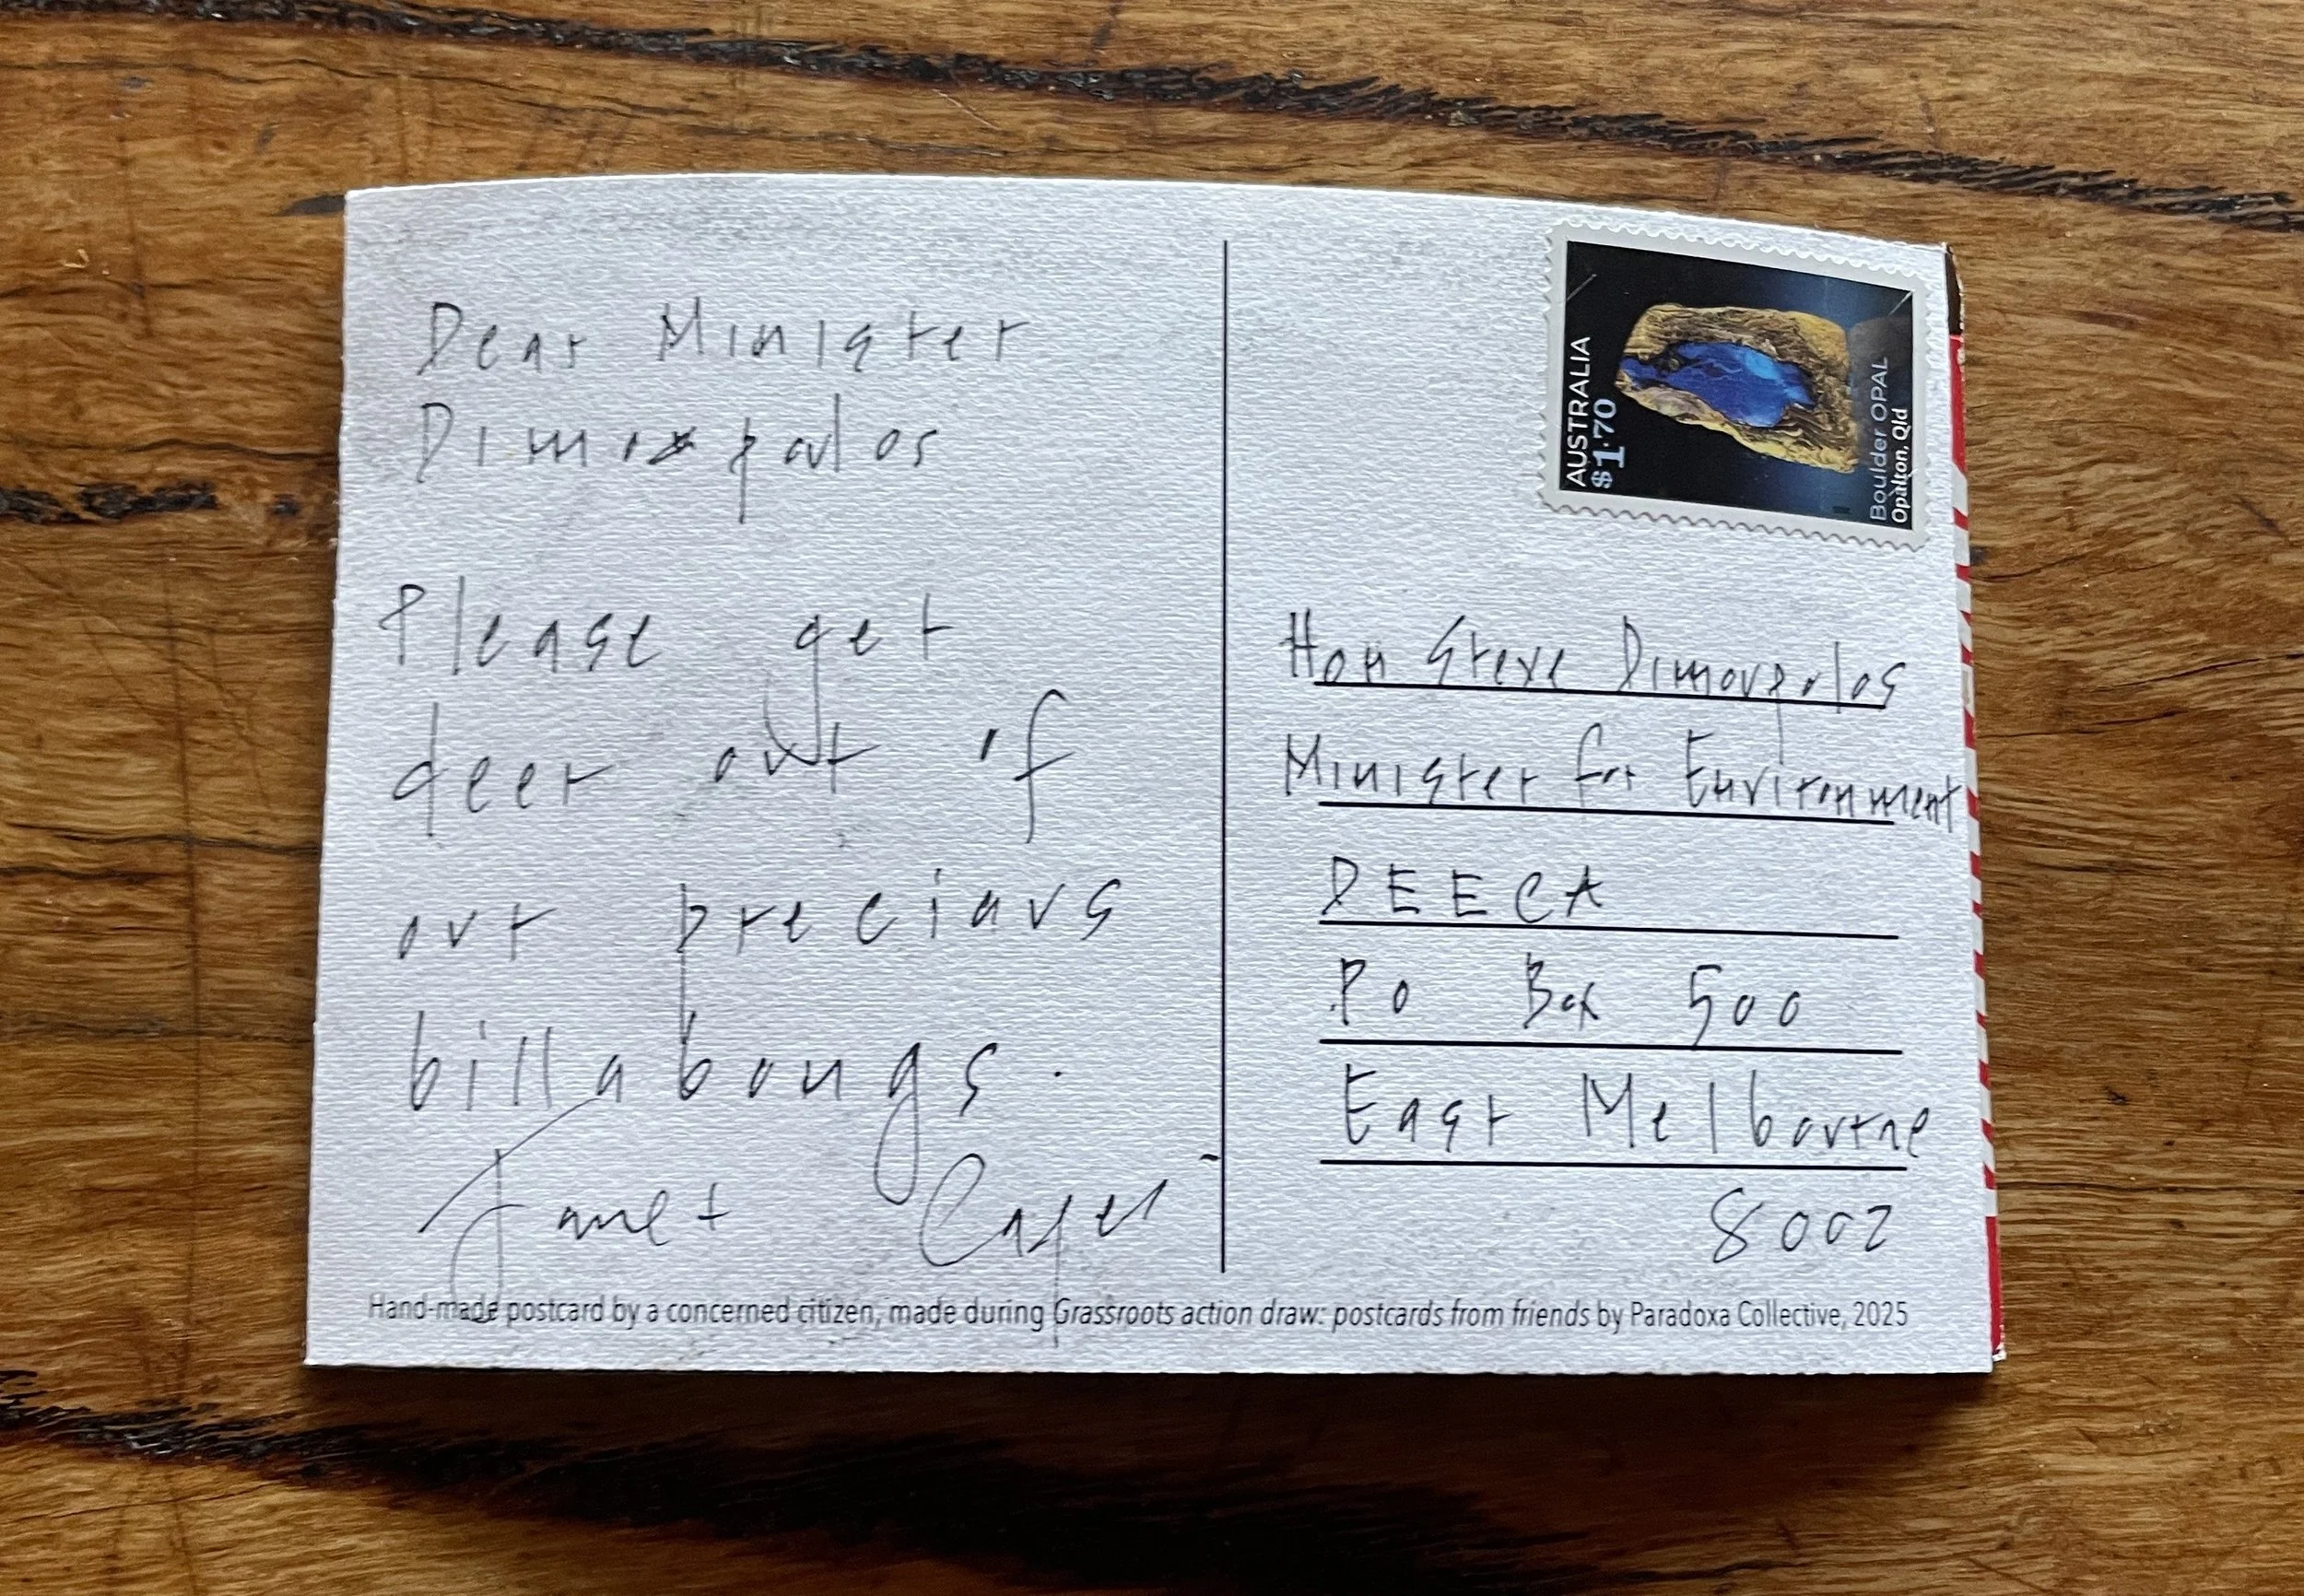 Dear Minister
Dimopoulos
Please get
deer out of
our precious
billabongs.
Janet
AUSTRALIA
$1.70
Boulder OPAL
Opalton, Qld
Hon Steve Dimopoulos
Minister for Environment
DEECA
PO Box 500
East Melbourne
8002
Hand-made postcard by a concerned citizen, made during Grassroots action draw: postcards from friends by Paradoxa Collective, 2025